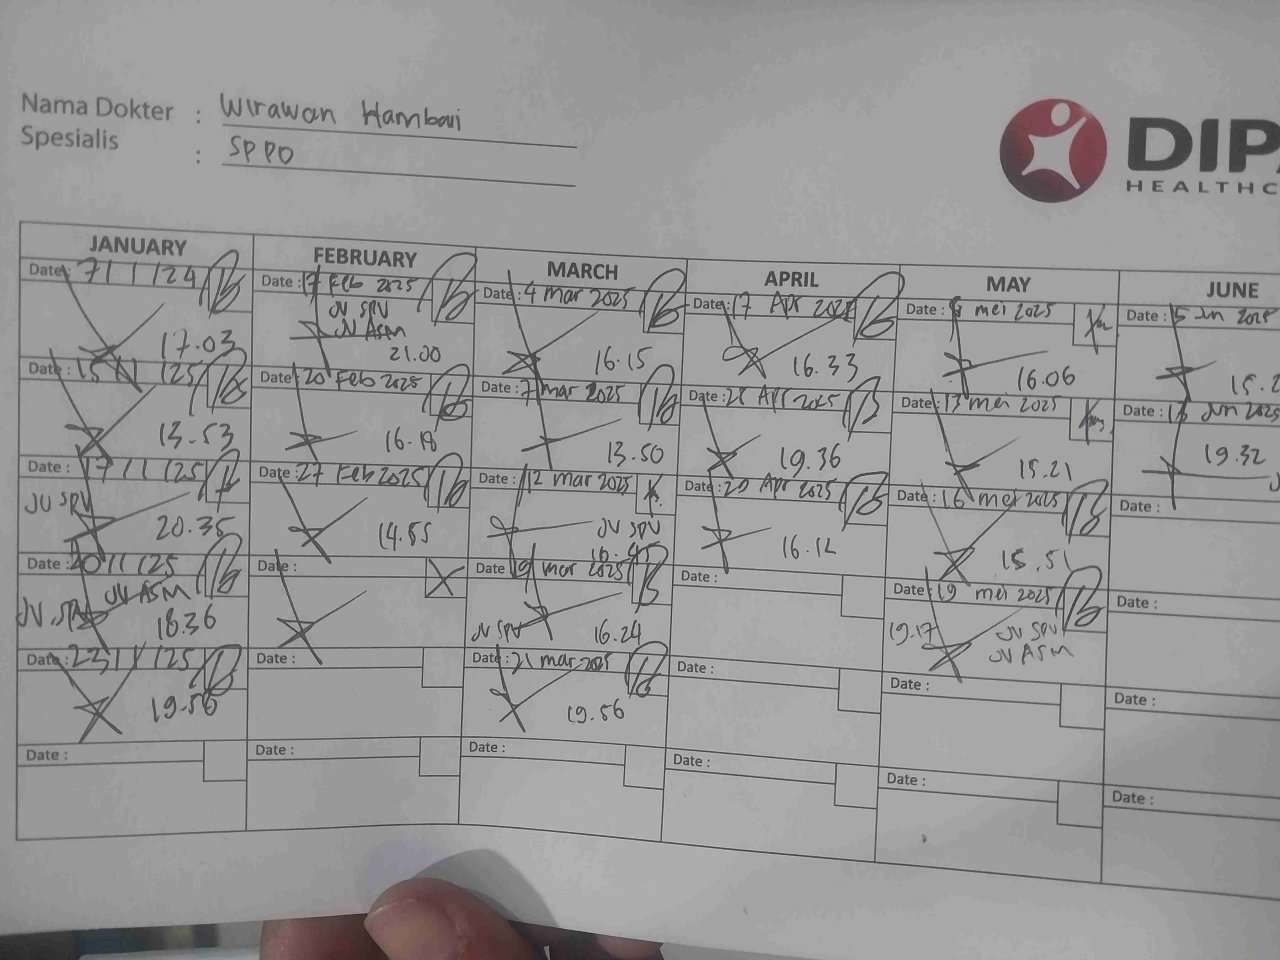 Nama Dokter : Wirawan Hambari
Spesialis : SPPD
DIPA
HEALTHC
JANUARY
Date: 7/1/24
17.03
Date: 15/1/25
13.53
Date: 17/1/25
JV SPV
20.35
Date: 20/1/25
JV ASM
JV SPV
18.36
Date: 23/1/25
19.56
Date :
FEBRUARY
Date : 17 Feb 2025
JV SPV
JV ASM
21.00
Date : 20 Feb 2025
16.18
Date : 27 Feb 2025
14.55
Date :
Date :
Date :
MARCH
Date : 4 mar 2025
16.15
Date : 7 mar 2025
13.50
Date : 12 mar 2025
JV SPV
16.45
Date : 19 mar 2025
JV SPV 16.24
Date : 21 mar 2025
19.56
Date :
APRIL
Date : 17 Apr 2025
16.33
Date : Apr 2025
19.36
Date : Apr 2025
16.12
Date :
Date :
Date :
MAY
Date : mei 2025
16.06
Date : 13 mei 2025
15.21
Date : 16 mei 2025
15.51
Date : 19 mei 2025
19.17
JV SPV
JV ASM
Date :
Date :
JUNE
Date : 5 Jun 2025
15.2
Date : Jun 2025
19.32
Date :
Date :
Date :
Date :